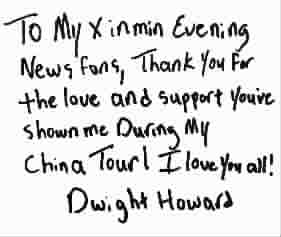 To My Xinmin Evening
News fans, Thank You For
the love and support You've
shown me During My
China Tour! I love You all!
Dwight Howard